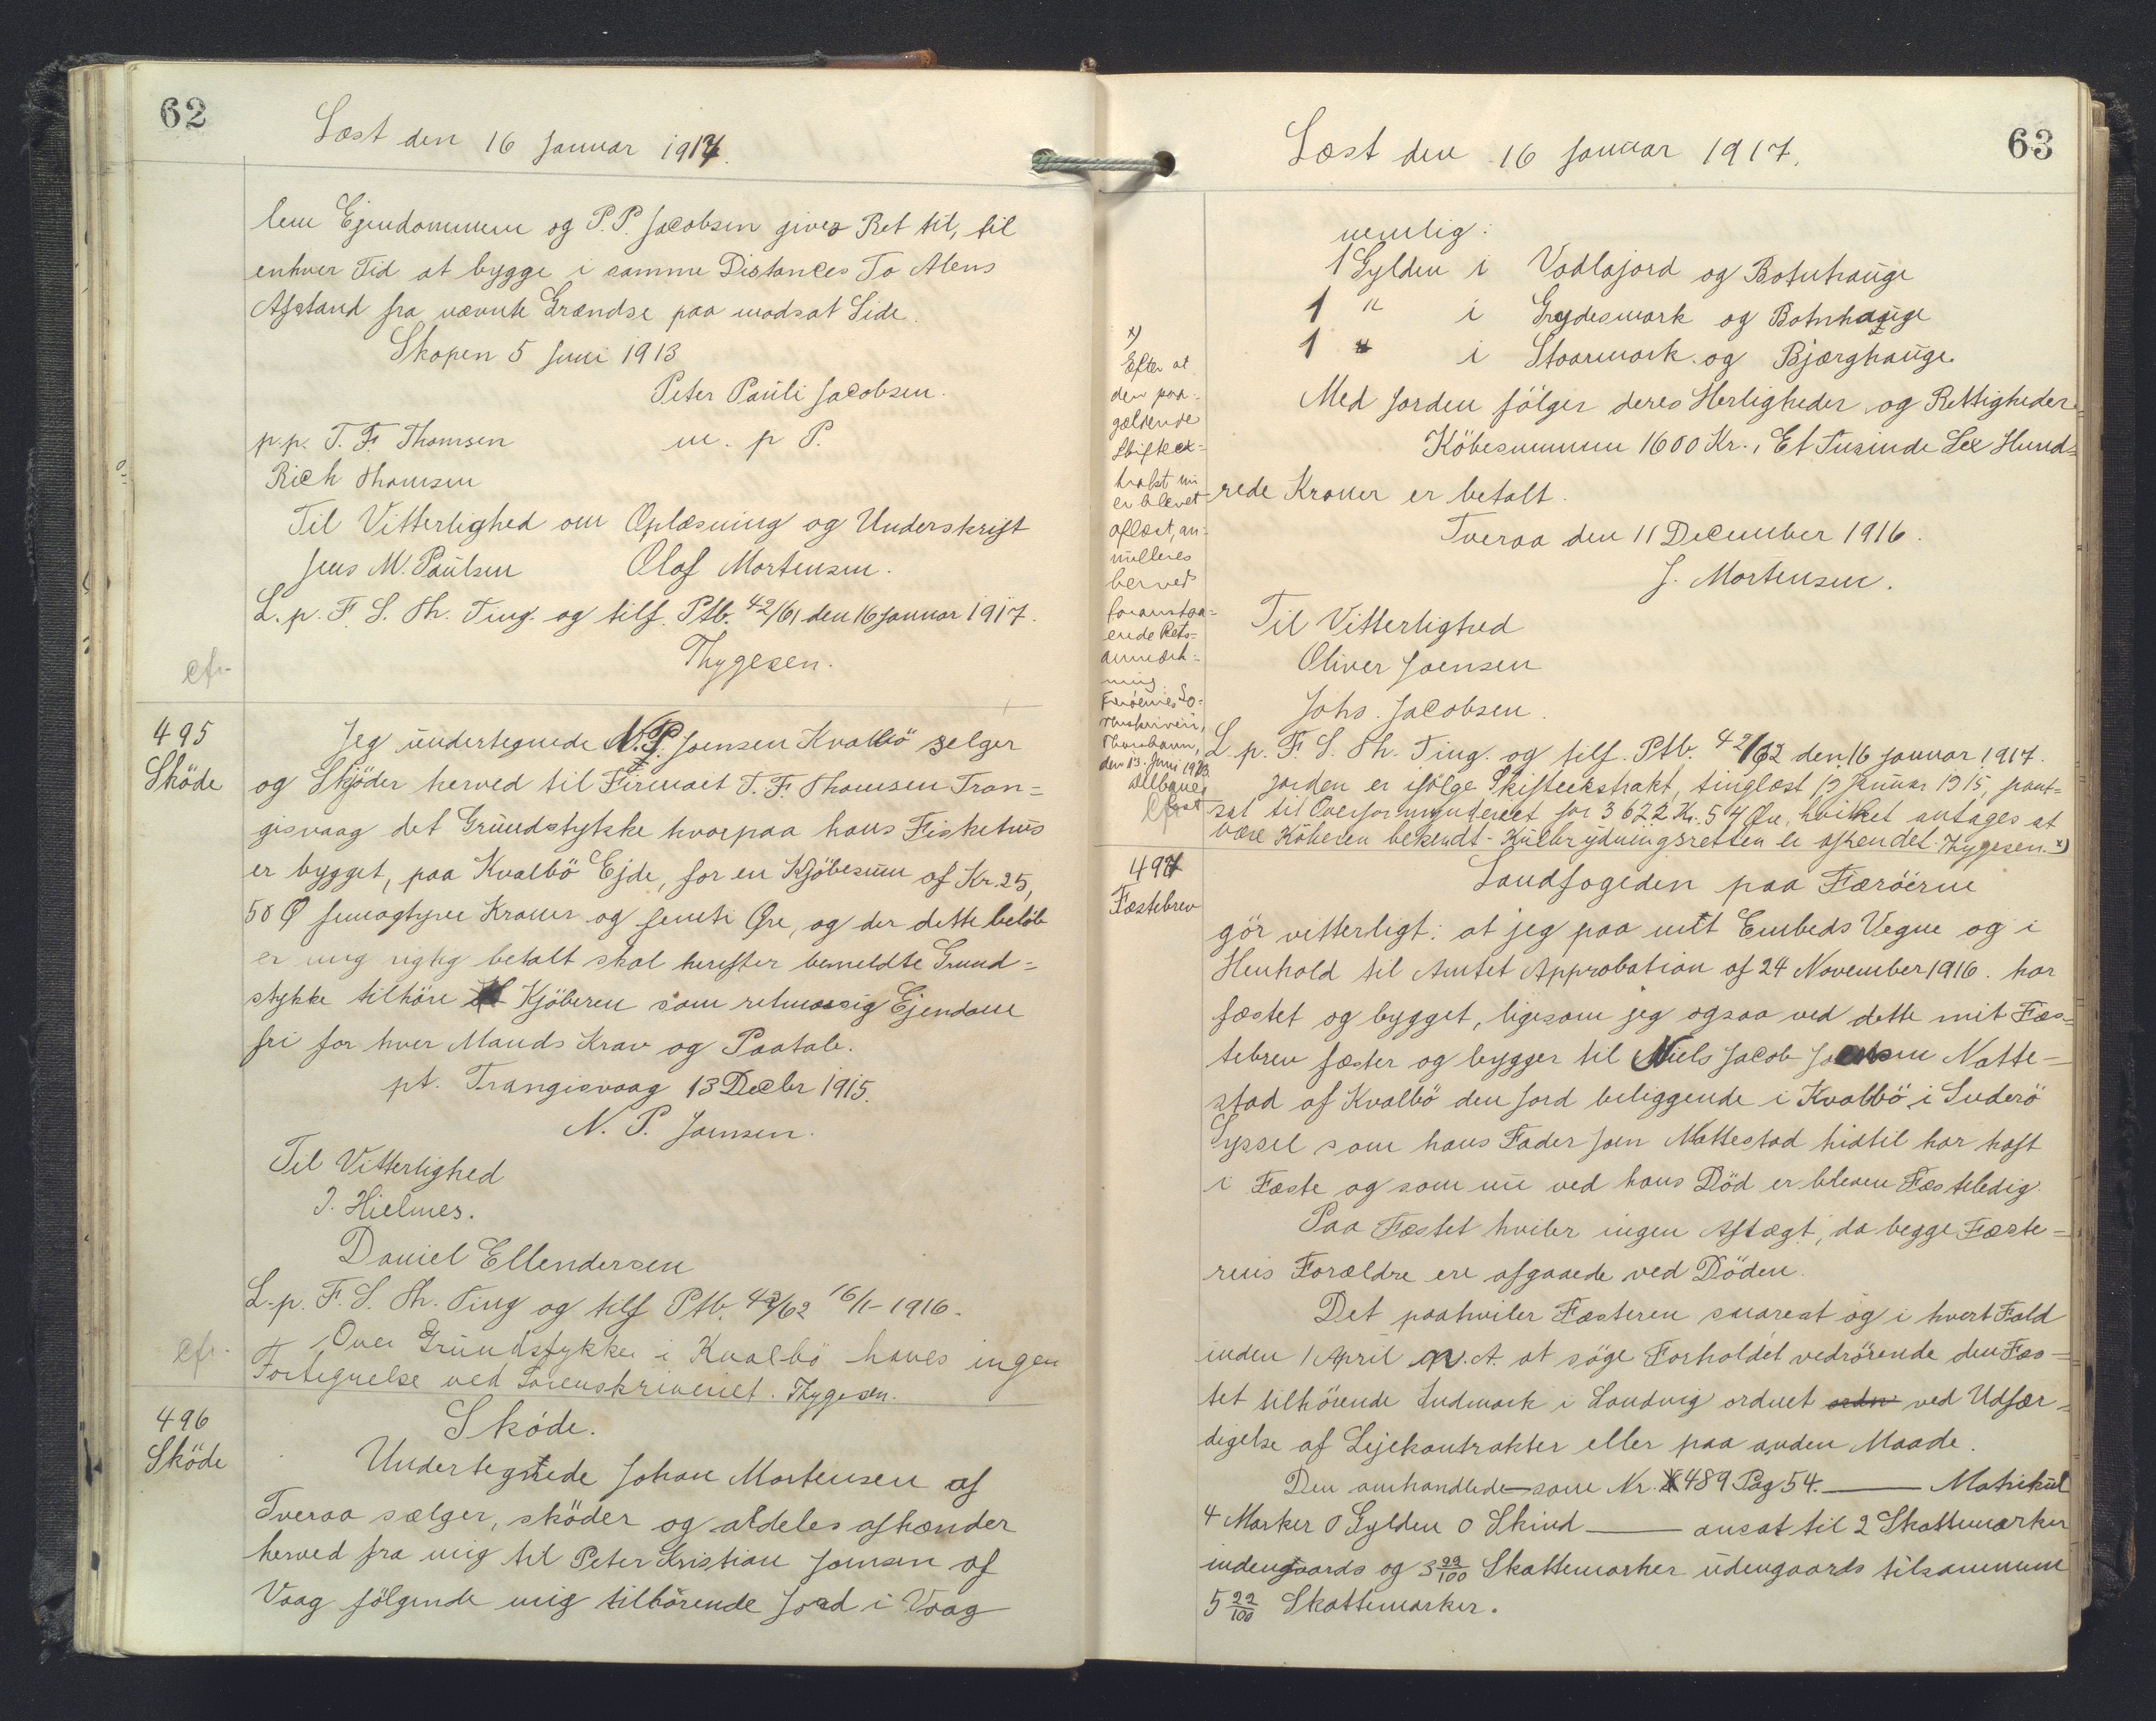 62
Læst den 16 Januar 1917.
lem Ejendommene og P.P. Jacobsen gives Ret til, til
enhver Tid at bygge i samme Distances To Alens
Afstand fra nævnte Grændse paa modsat Side.
Skopen 5 Juni 1913
Peter Pauli Jacobsen.
p.p. T. F. Thomsen m. p P.
Rich Thomsen
Til Vitterlighed om Oplæsning og Underskrift
Jens M. Paulsen Olaf Mortensen.
L. p. F. S. Th. Ting. og tilf. Ptb. 42/61 den 16 Januar 1917.
Thygesen.
cfr.
495
Sköde
Jeg undertegnede N.P. Joensen Kvalbö selger
og Skjöder herved til Firmaet T. F. Thomsen Tran=
gisvaag det Grundstykke hvorpaa hans Fiskehus
er bygget, paa Kvalbö Ejde, for en Kjöbesum af Kr. 25,
50 Ø femogtyve Kroner og femti Øre, og der dette belöb
er mig rigtig betalt skal herefter bemeldte Grund=
stykke tilhöre Kjöberen som retmæssig Ejendom
fri for hver Mands Krav og Paatale.
pt. Trangisvaag 13 Decbr 1915.
N. P. Joensen.
Til Vitterlighed
J. Hielmes.
Daniel Ellendersen
L. p. F. S. Th. Ting og tilf Ptb. 42/62 16/1-1916.
cfr.
Over Grundstykker i Kvalbö haves ingen
Fortegnelse ved Sorenskriveriet. Thygesen.
496
Sköde
Sköde.
Undertegnede Johan Mortensen af
Tveraa sælger, sköder og aldeles afhænder
herved fra mig til Peter Kristian Joensen af
Vaag fölgende mig tilhörende Jord i Vaag
63
Læst den 16 Januar 1917.
nemlig:
1 Gylden i Vadlajord og Botnhauge
1 " i Grydesmark og Botnhauge
1 " i Stoarmark og Bjærghauge
Med Jorden fölger deres Herligheder og Rettigheder
Köbesummen 1600 Kr., Et Tusinde Sex Hund=
rede Kroner er betalt.
Tveraa den 11 December 1916.
J. Mortensen.
Til Vitterlighed
Oliver Joensen
Johs. Jacobsen.
L. p. F. S. Th. Ting. og tilf. Ptb. 42/62 den 16 Januar 1917.
Jorden er ifölge Skifteekstrakt, tinglæst 19 Januar 1915, pant=
sat til Overformynderiet for 3622 Kr. 54 Øre, hvilket antages at
være Köberen bekendt - Kulbrydningsretten er afhændet. Thygesen. x)
x)
Efter at
den paa=
gældende
Skifteex=
trakt nu
er blevet
aflæst, an=
nulleres
herved
foranstaa=
ende Rets=
anmærk=
ning.
Færöernes So=
renskriveri,
Thorshavn,
den 13. Juni 1923.
cfr
497
Fæstebrev
Landfogeden paa Færöerne
gör vitterligt: at jeg paa mit Embeds Vegne og i
Henhold til Amtet Approbation af 24 November 1916. har
fæstet og bygget, ligesom jeg ogsaa ved dette mit Fæs=
tebrev fæster og bygger til Niels Jacob Joensen Natte=
stad af Kvalbö den Jord beliggende i Kvalbö i Suderö
Syssel som hans Fader Joen Nattestad hidtil har haft
i Fæste og som nu ved hans Död er bleven Fæsteledig.
Paa Fæstet hviler ingen Aftægt, da begge Fæste=
rens Forældre ere afgaaede ved Döden.
Det paahviler Fæsteren snarest og i hvert Fald
inden 1 April n. A. at söge Forholdet vedrörende den Fæs=
tet tilhörende Indmark i Sandvig ordnet ordn ved Udfær=
digelse af Lejekontrakter eller paa anden Maade.
Den omhandlede - som Nr. 489 Pag 54. — Matrikul
4 Marker 0 Gylden 0 Skind — ansat til 2 Skattemarker
indengaards og 3 22/100 Skattemarker udengaards tilsammen
5 22/100 Skattemarker.